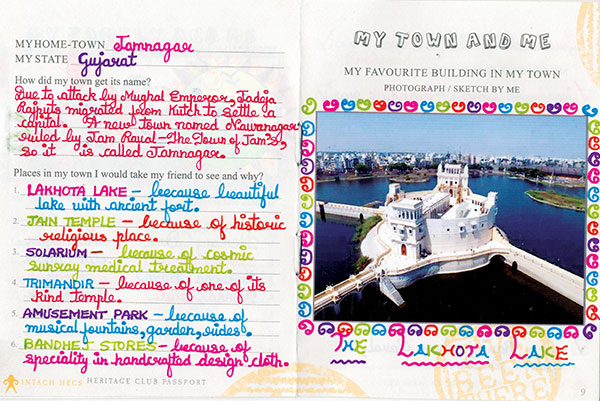 MY HOME-TOWN Jamnagar
MY STATE Gujarat
How did my town get its name?
Due to attack by Mughal Emperor, Jadeja
Rajputs migrated from Kutch to settle a
capital. A new Town named Nawanagar
ruled by Jam Raval-The Town of Jam's,
so it is called Jamnagar.
Places in my town I would take my friend to see and why?
1. LAKHOTA LAKE - because beautiful
lake with ancient fort.
2. JAIN TEMPLE - because of historic
religious place.
3. SOLARIUM - because of cosmic
sunray medical treatment.
4. TRIMANDIR - because of one of its
kind temple.
5. AMUSEMENT PARK - because of
musical fountains, garden, rides.
6. BANDHEJ STORES - because of
speciality in handcrafted design cloth.
INTACH HECS HERITAGE CLUB PASSPORT
MY TOWN AND ME
MY FAVOURITE BUILDING IN MY TOWN
PHOTOGRAPH / SKETCH BY ME
THE LAKHOTA LAKE
9